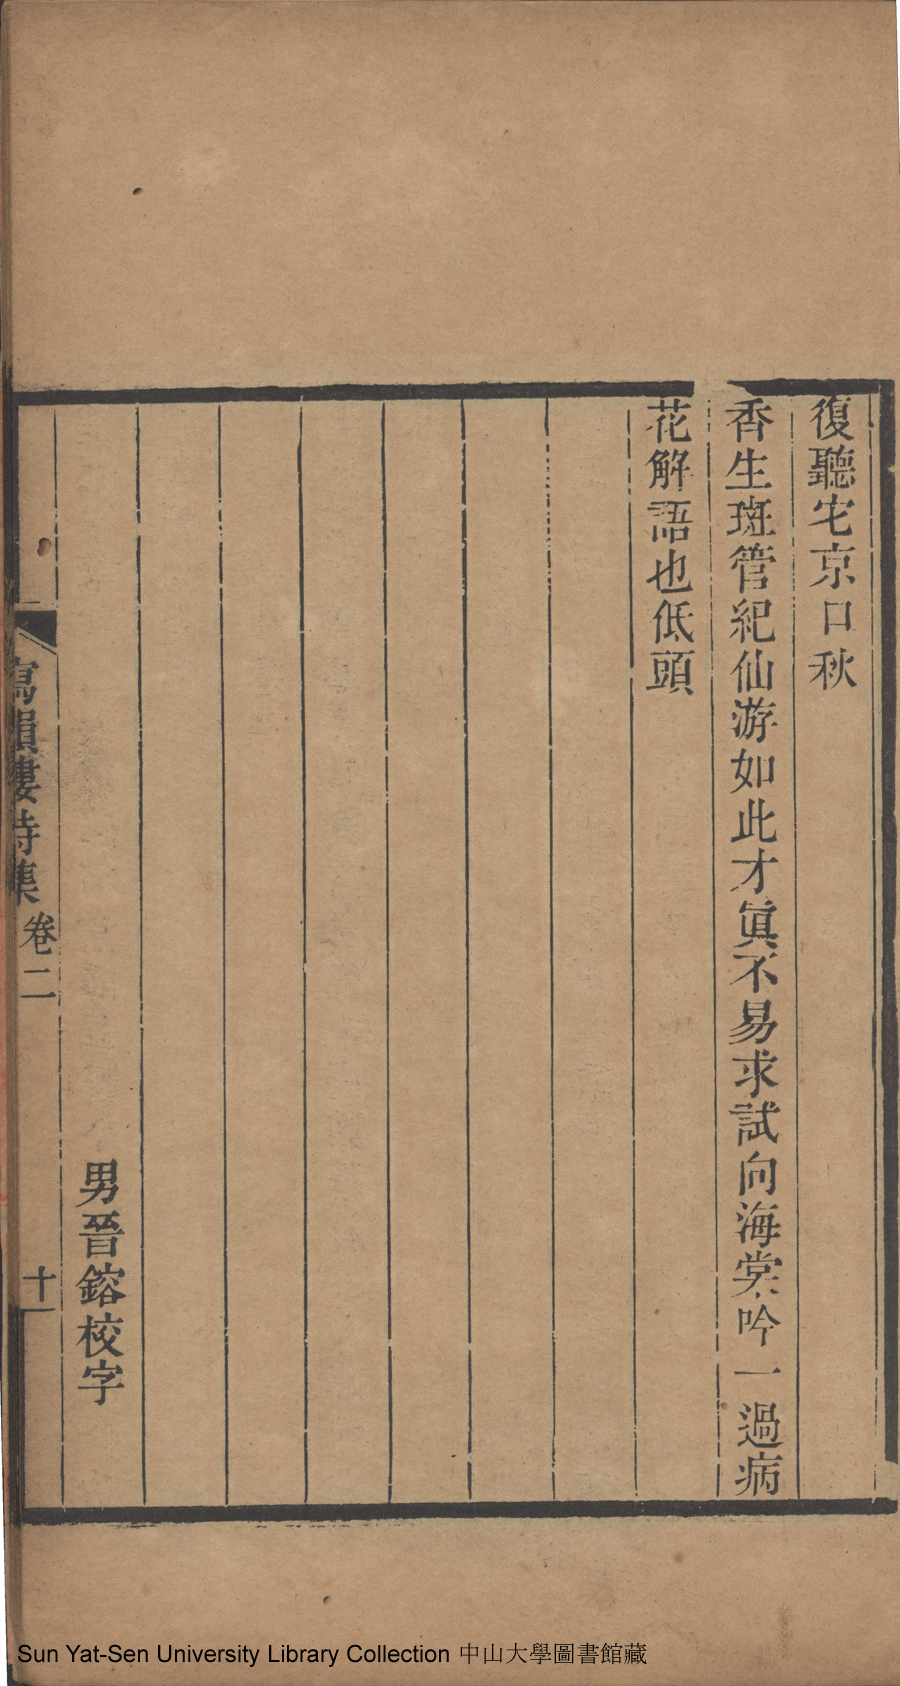 復聽它京口秋
香生斑管紀仙游如此才眞不易求試向海棠吟一過病
花解語也低頭
男晉鎔校字
寫韻樓詩集
卷二
十
Sun Yat-Sen University Library Collection 中山大學圖書館藏